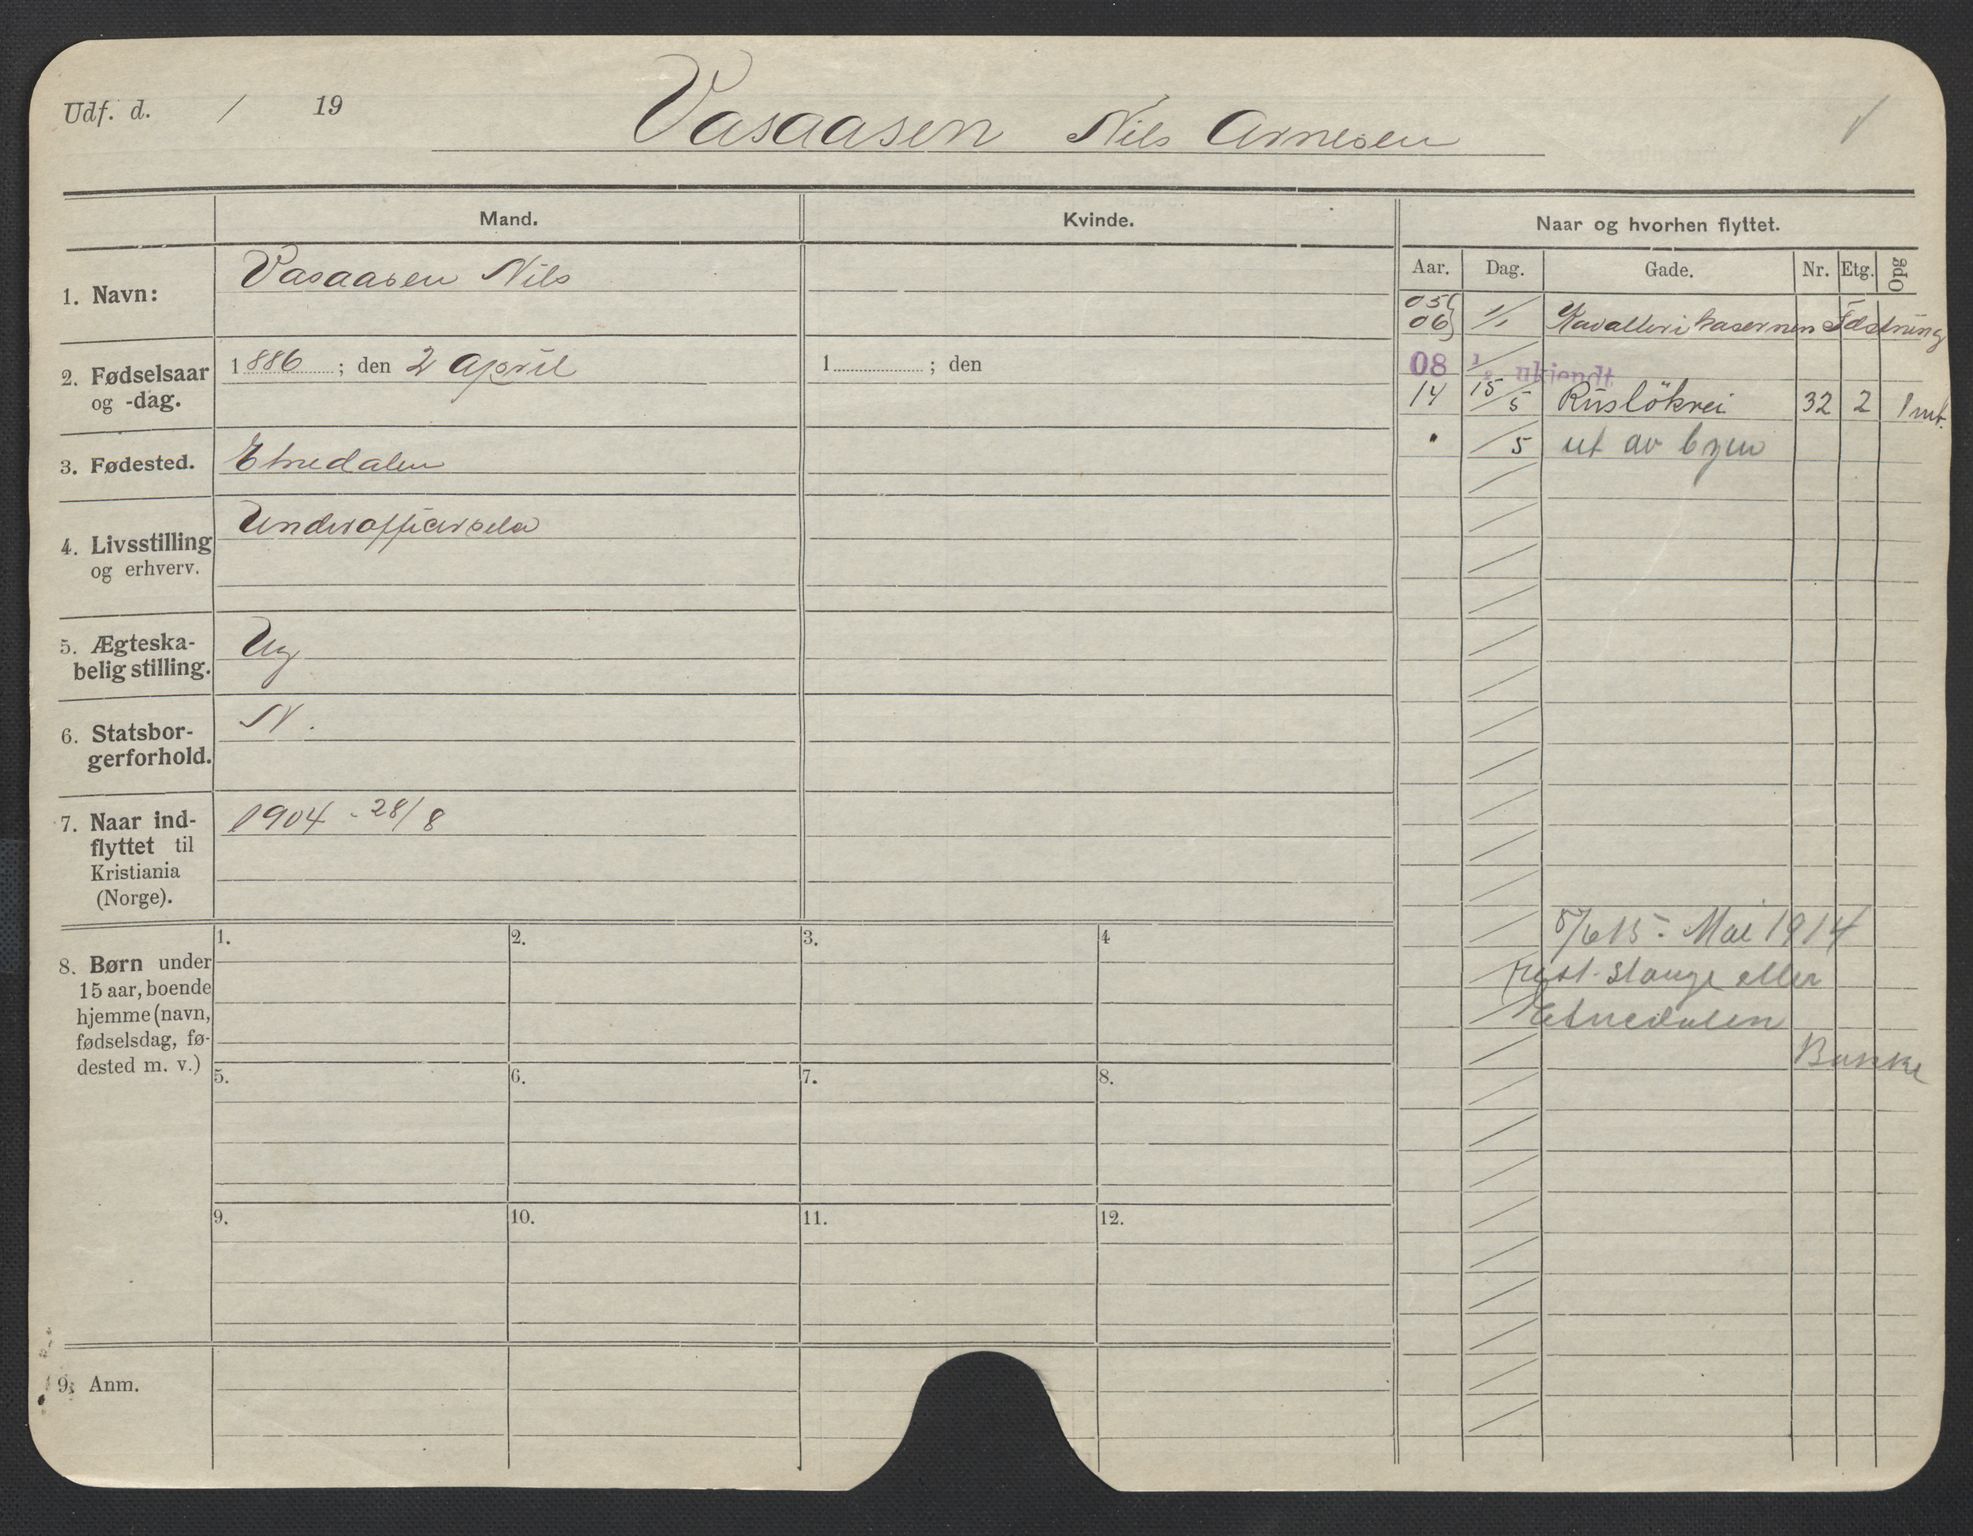 Udf. d. / 19
Vasaasen Nils Arnesen
Mand.
Kvinde.
Naar og hvorhen flyttet.
Aar. Dag. Gade. Nr. Etg. Opg
1. Navn:
Vasaasen Nils
05
06 1/1 Kavallerikasernen Fæstning
2. Fødselsaar
og -dag.
1886; den 2 April
1 ; den
08 1/ ukjendt
14 15/5 Rusløkvei 32 2
" /5 ut av byen
3. Fødested.
Etnedalen
4. Livsstilling
og erhverv.
Underofficersela
5. Ægteska-
belig stilling.
Ug
6. Statsbor-
gerforhold.
N.
7. Naar ind-
flyttet til
Kristiania
(Norge).
1904 - 28/8
8. Børn under
15 aar, boende
hjemme (navn,
fødselsdag, fø-
dested m. v.)
1. 2. 3. 4
5. 6. 7. 8.
9. 10. 11. 12.
Mai 1914
Stange eller
Etnedalen
9. Anm.